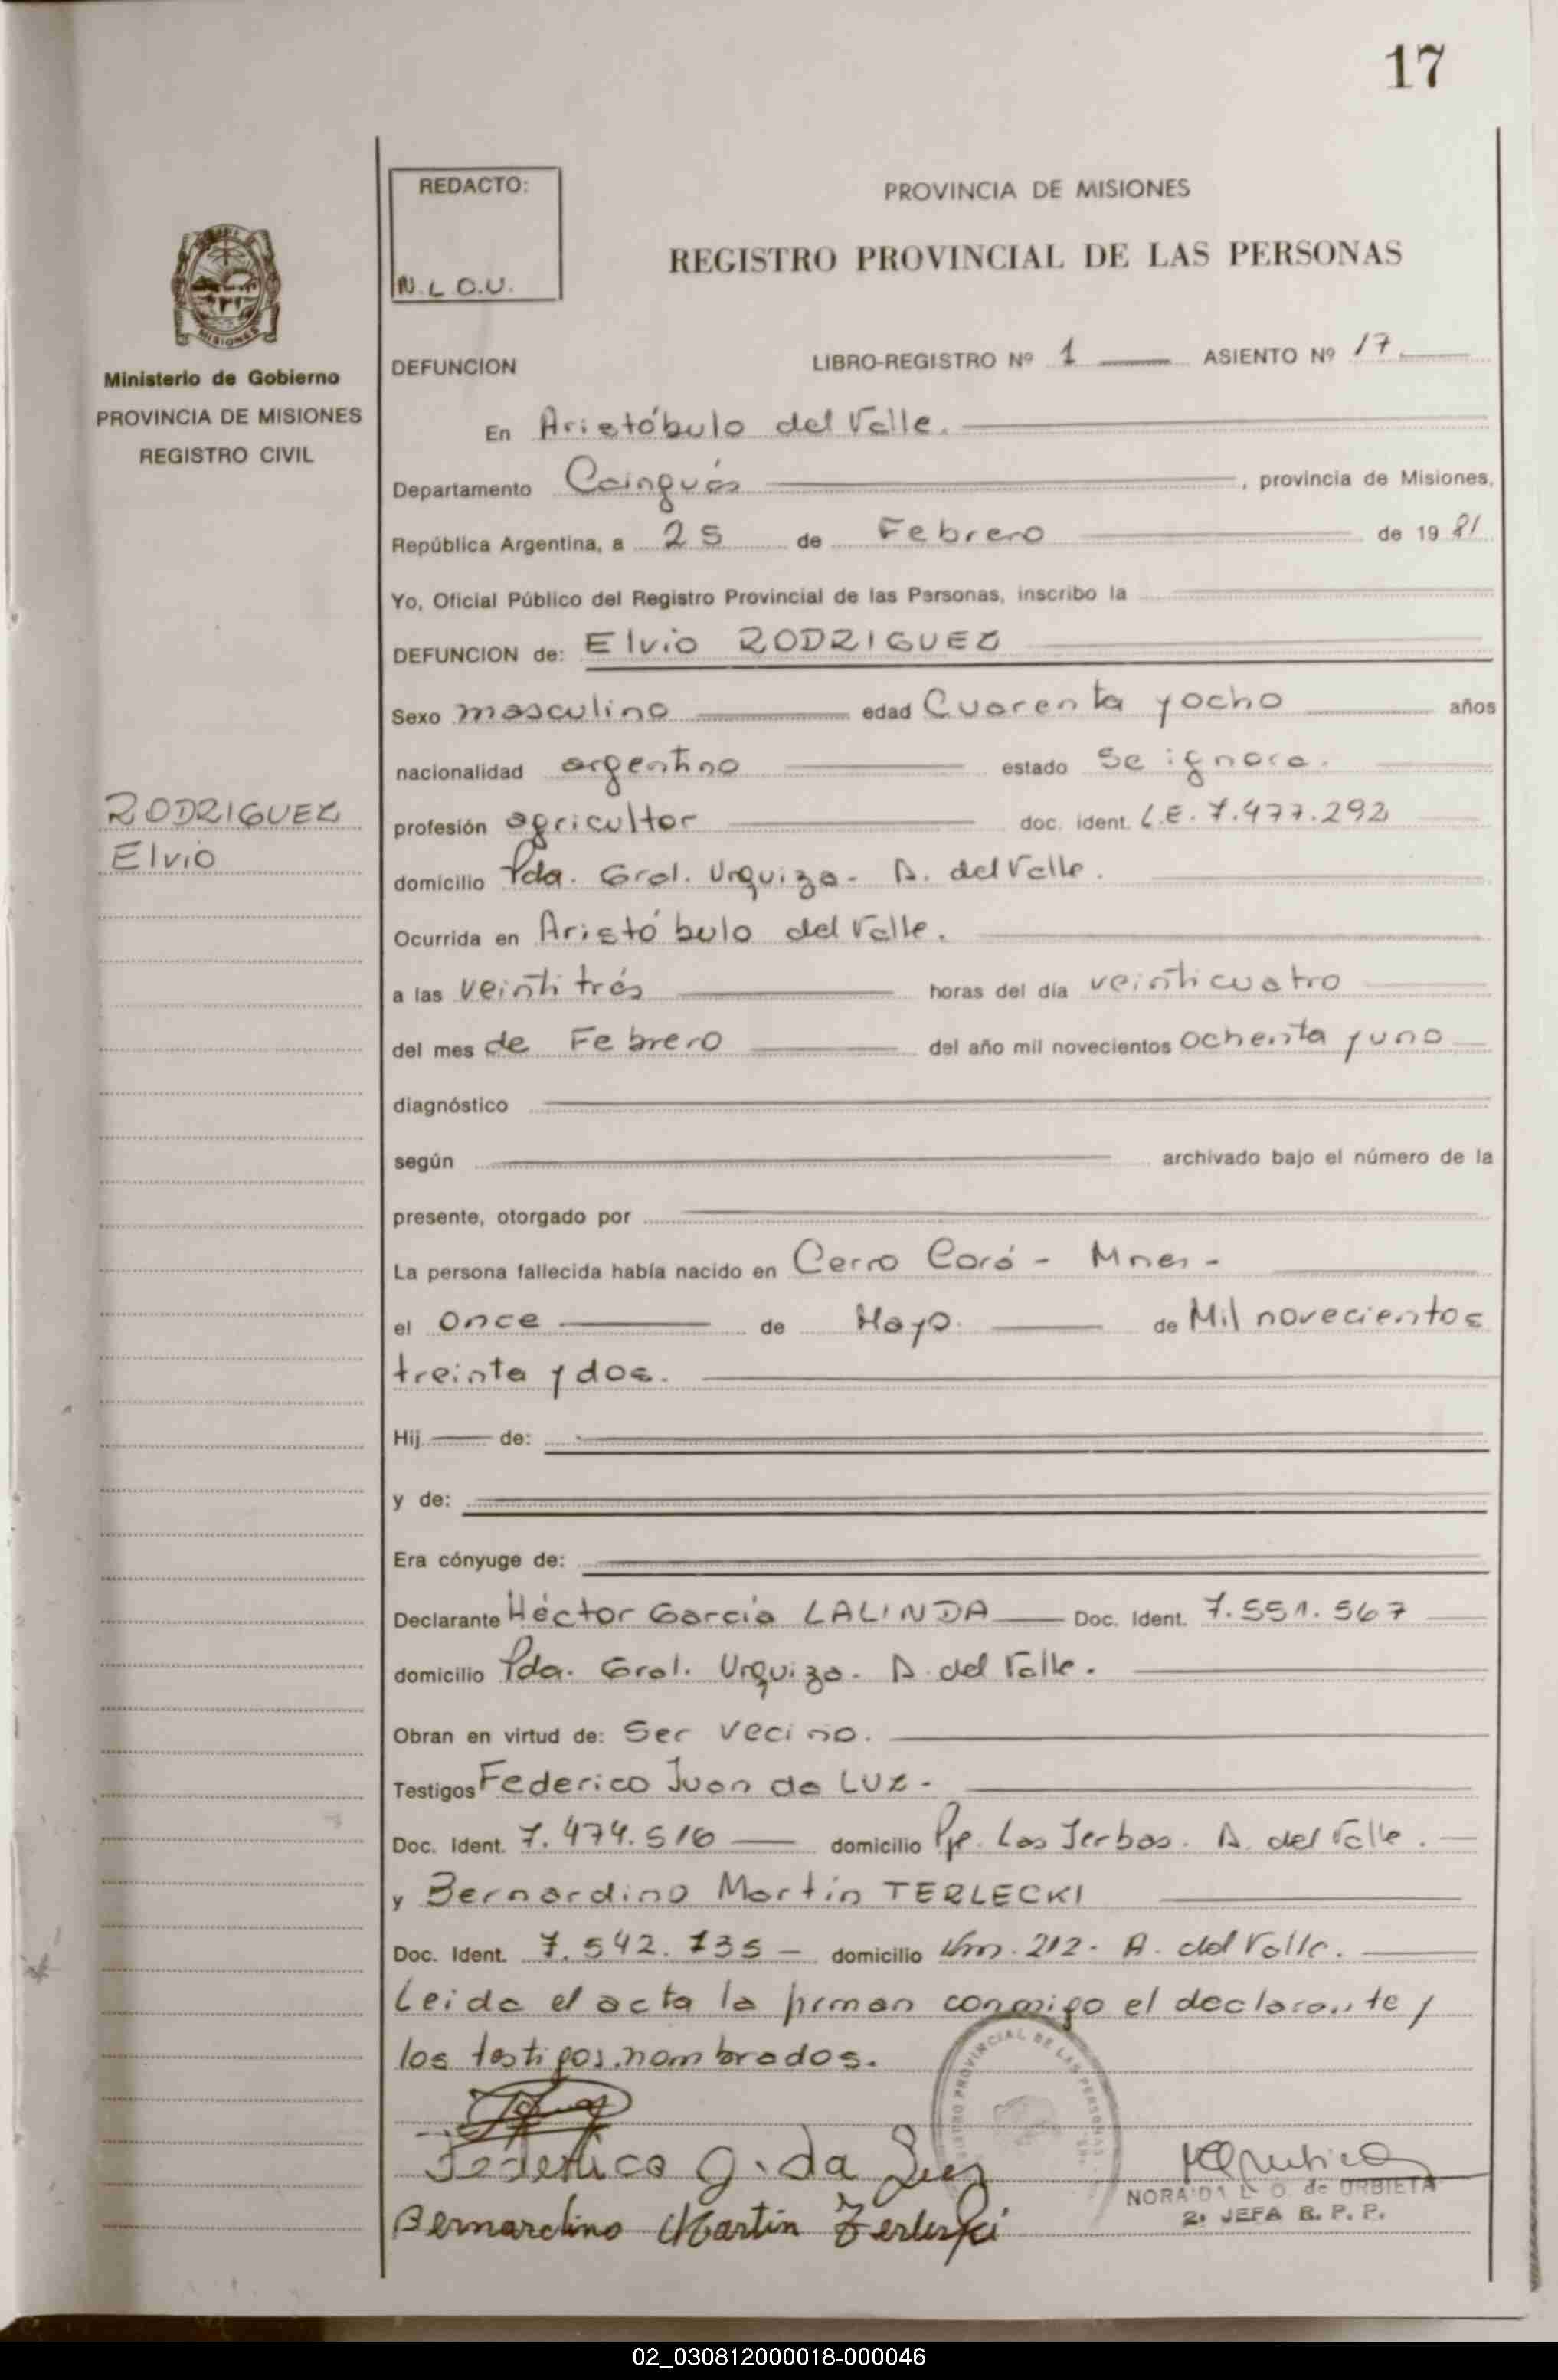 17
REDACTO:
N.L.O.U.
PROVINCIA DE MISIONES
REGISTRO PROVINCIAL DE LAS PERSONAS
MISIONES
Ministerio de Gobierno
PROVINCIA DE MISIONES
REGISTRO CIVIL
RODRIGUEZ
Elvio
DEFUNCION LIBRO-REGISTRO Nº 1 ASIENTO Nº 17
En Aristóbulo del Valle.
Departamento Cainguás, provincia de Misiones,
República Argentina, a 25 de Febrero de 1981
Yo, Oficial Público del Registro Provincial de las Personas, inscribo la
DEFUNCION de: Elvio RODRIGUEZ
Sexo masculino edad Cuarenta y ocho años
nacionalidad argentino estado se ignora.
profesión agricultor doc. ident. L.E. 7.477.292
domicilio Pda. Gral. Urquiza - A. del Valle.
Ocurrida en Aristóbulo del Valle.
a las veintitrés horas del día veinticuatro
del mes de Febrero del año mil novecientos ochenta y uno
diagnóstico
según archivado bajo el número de la
presente, otorgado por
La persona fallecida había nacido en Cerro Corá - Mnes -
el once de Mayo. de Mil novecientos
treinta y dos.
Hij de:
y de:
Era cónyuge de:
Declarante Héctor García LALINDA Doc. Ident. 7.551.567
domicilio Pda. Gral. Urquiza - A. del Valle.
Obran en virtud de: Ser vecino.
Testigos Federico Juan da LUZ -
Doc. Ident. 7.474.516 domicilio Pje. Las Yerbas. A. del Valle.
y Bernardino Martín TERLECKI
Doc. Ident. 7.542.135 - domicilio Km. 212 - A. del Valle.
Leida el acta la firman conmigo el declarante y
los testigos nombrados.
Federico J. da Luz
Bernardino Martin Terlecki
NORAIDA L. O. de URBIETA
2ª JEFA R. P. P.
02_030812000018-000046